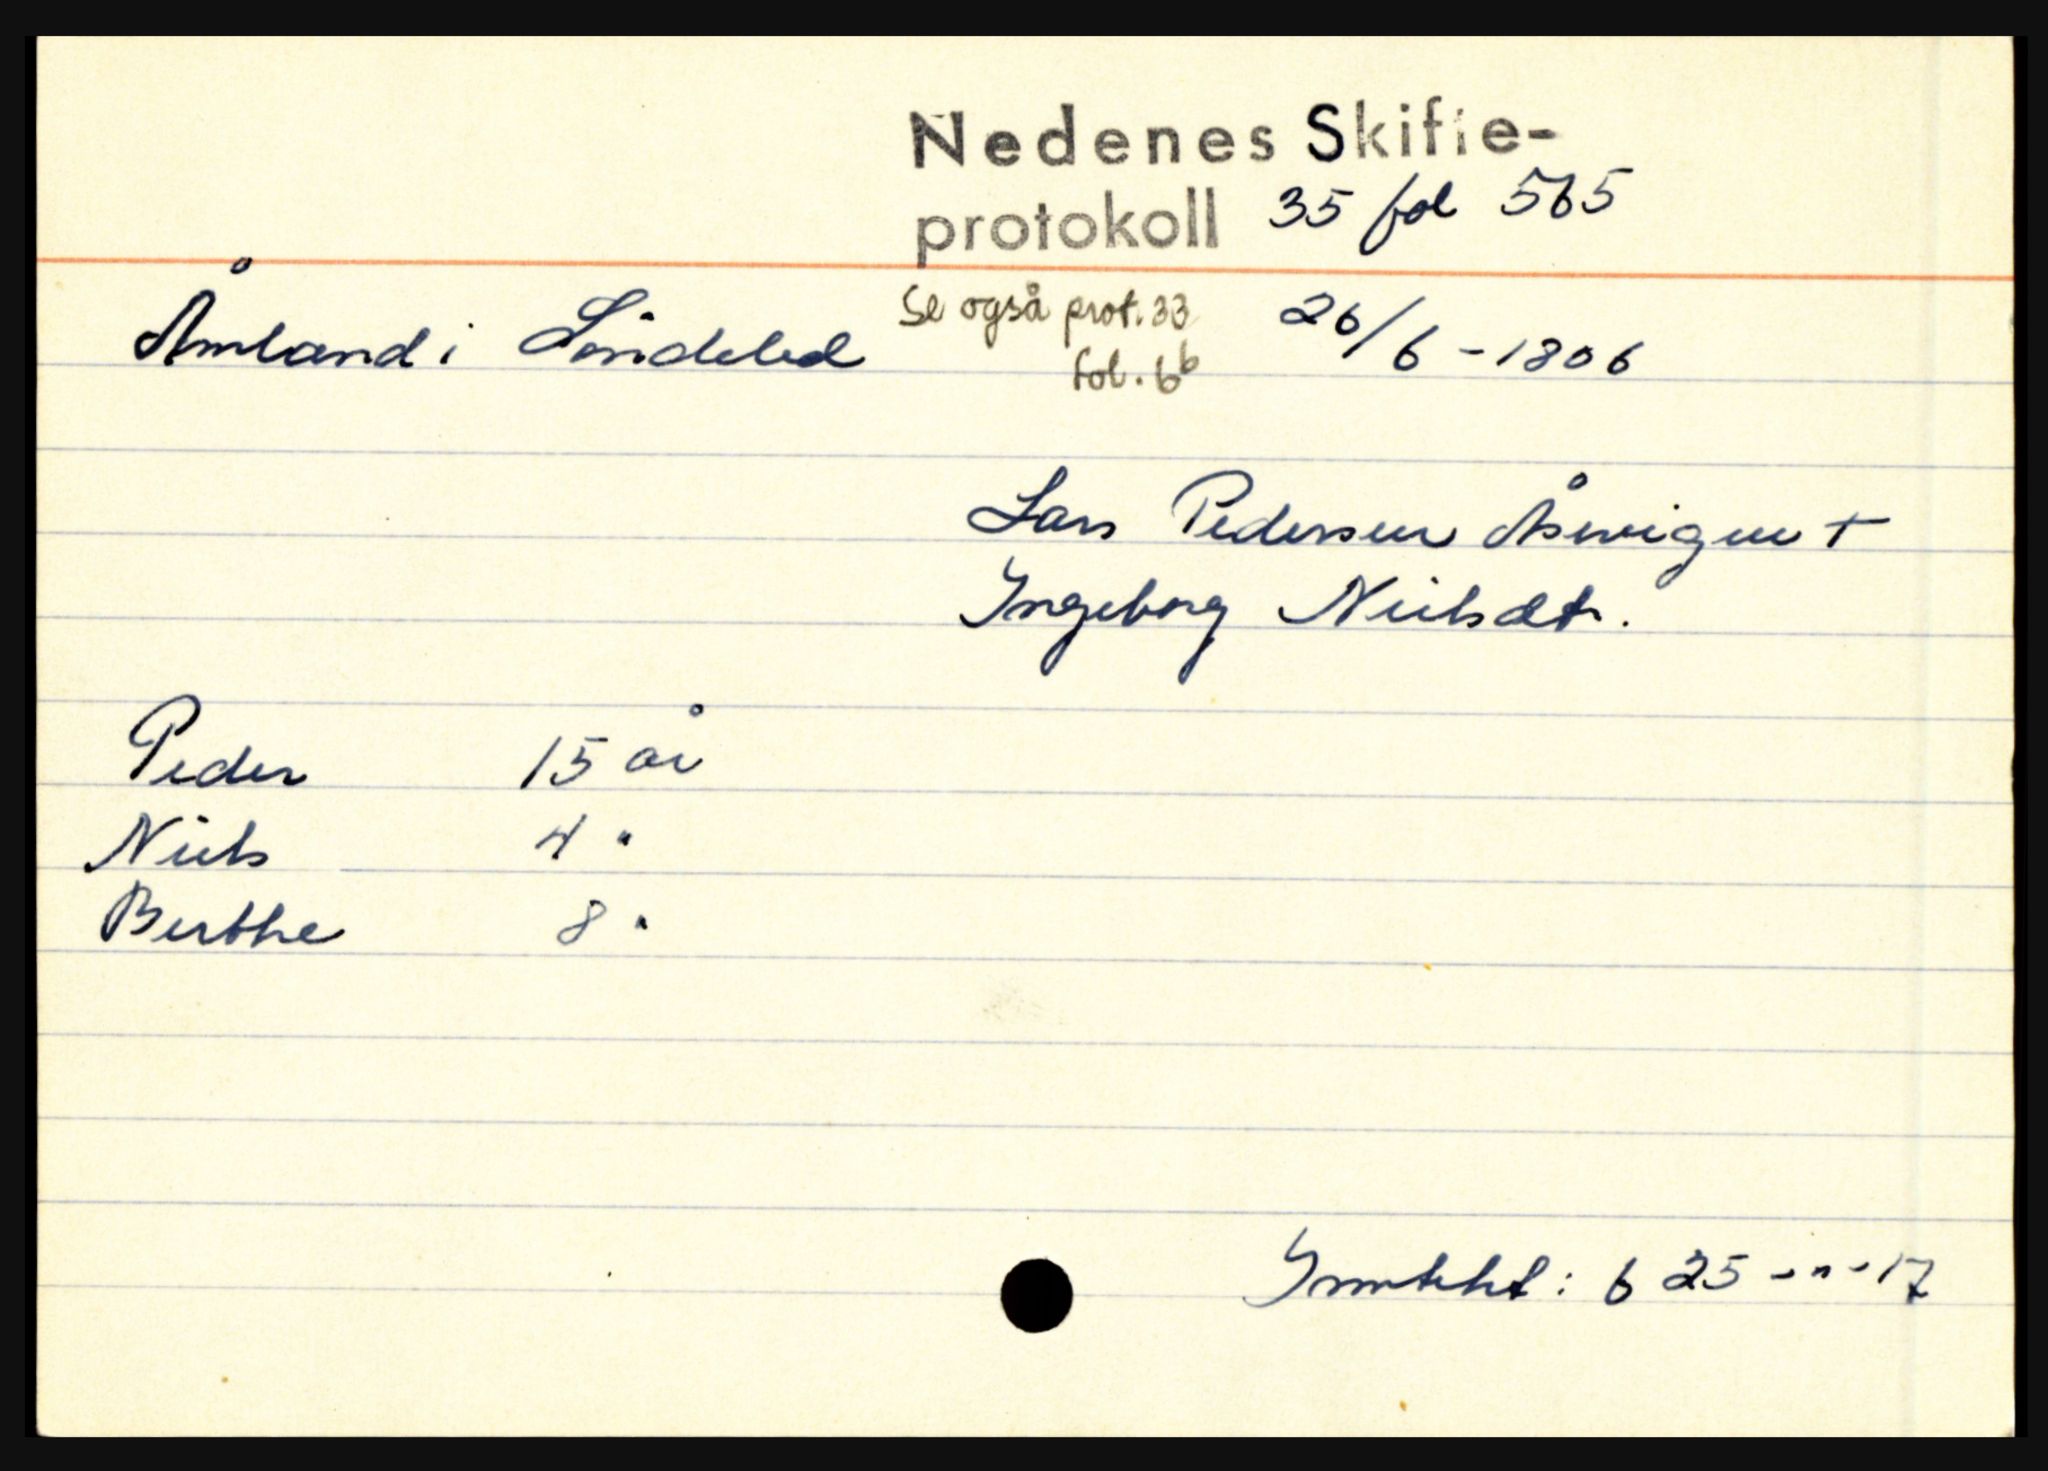 Nedenes Skifte-
protokoll 35 fol 565
Åmland i Söndeled Se også prot. 33 26/6 - 1806
fol. 6b
Lars Pedersen Åsvigen +
Ingeborg Nielsdt.
Peder 15 år
Niels 4 "
Berthe 8 "
Inntekt: 625 - " - 17